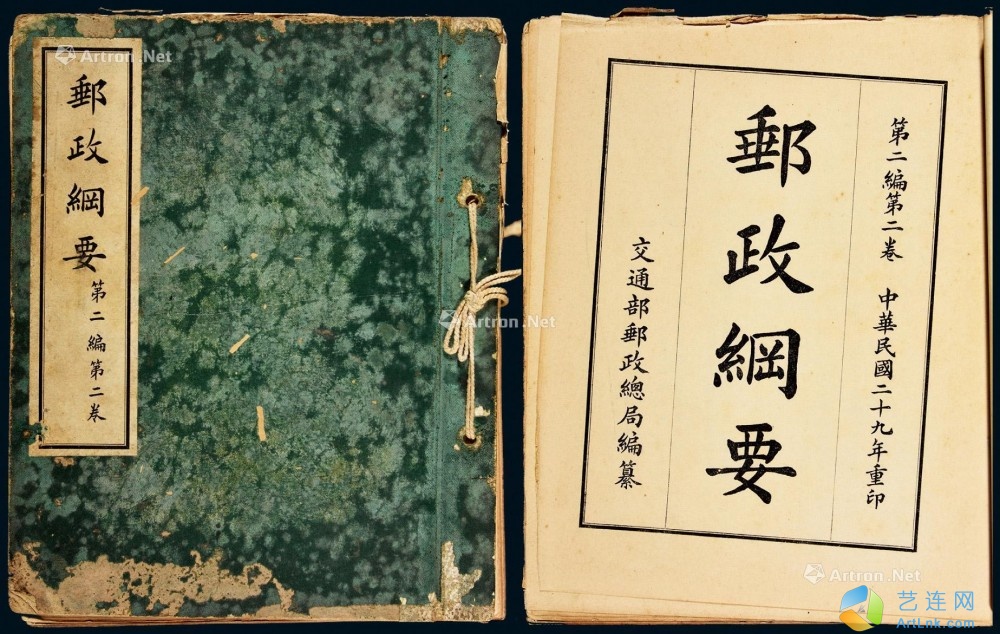 郵政綱要
第二編第二卷
第二編第二卷 中華民國二十九年重印
郵政綱要
交通部郵政總局編纂
Artron.Net
Artron.Net
Artron.Net
Artron.Net
艺连网
ArtLnk.com